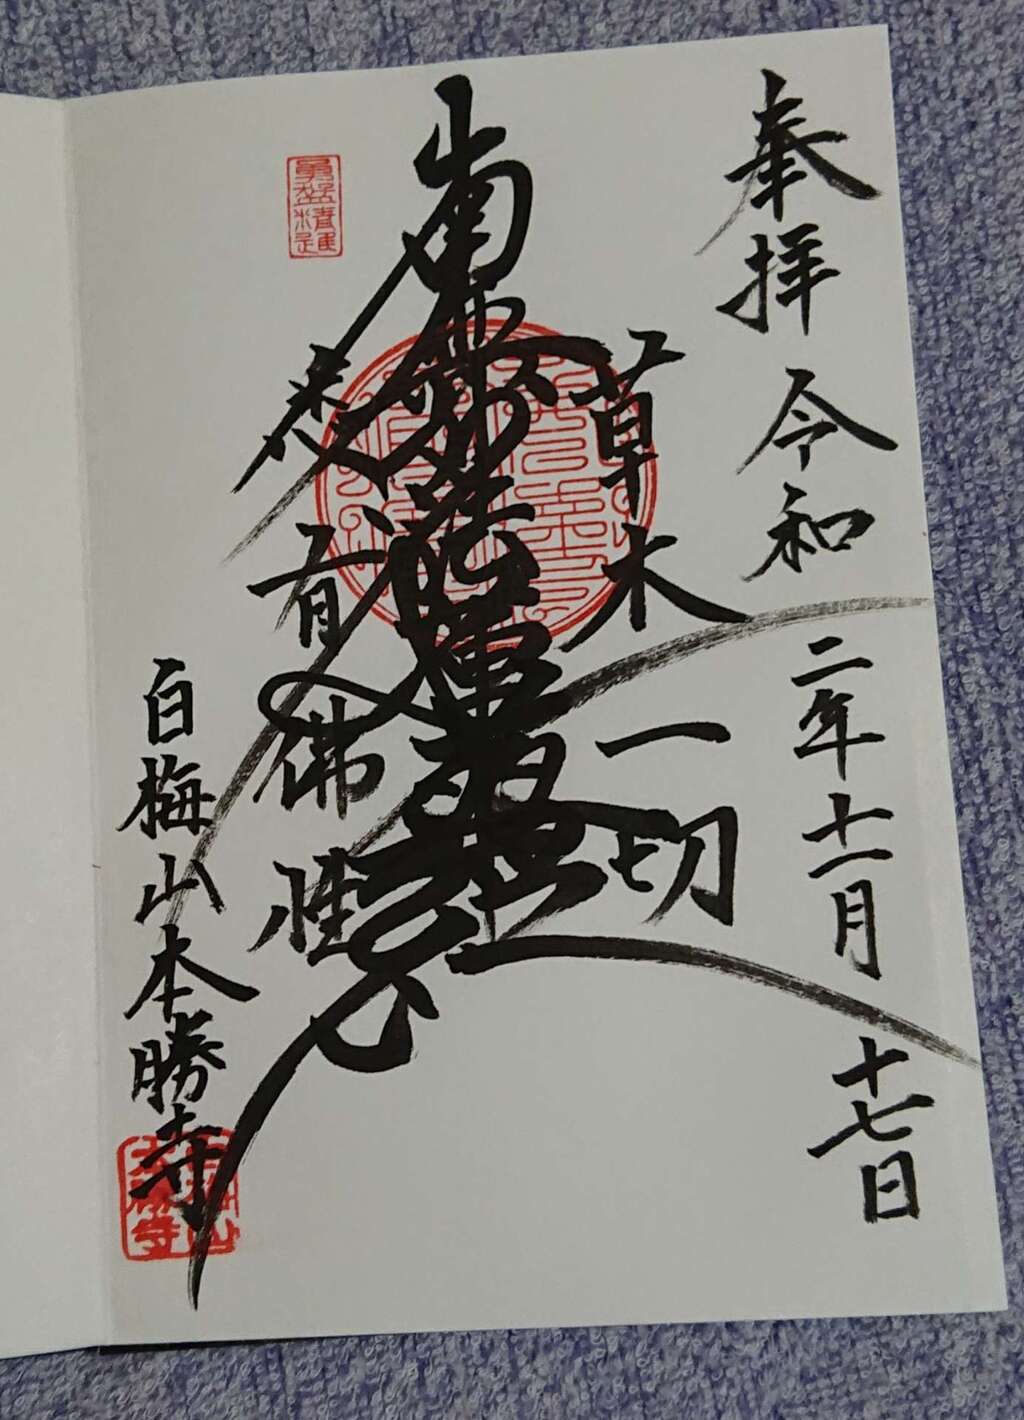 奉拝 令和二年十一月十七日
草木一切
南無妙法蓮華経
悉有佛性
勇猛精進
白梅山本勝寺